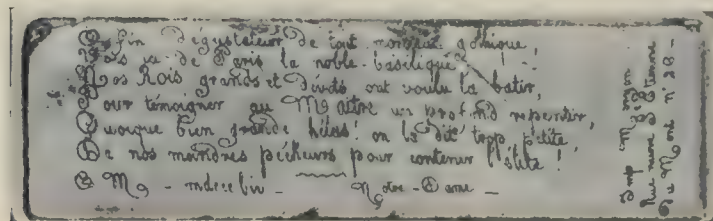 O fin dégustateur de tout morceau gothique,
Vois ici de Paris la noble basilique
Nos Rois grands et dévots ont voulu la batir,
Pour témoigner au Maître un profond repentir,
Quoique bien grande hélas! on la dit trop petite
De nos moindres pécheurs pour contenir l'élite!
Notre-Dame
Imp Mre
Rue neuve St Etienne
du Mont n°